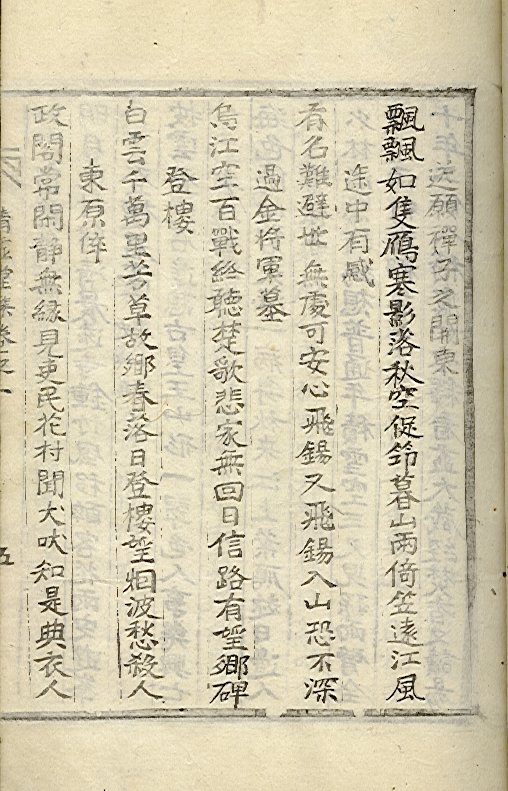 飄飄如隻鴈寒影落秋空促笻暮山雨倚笠遠江風
途中有感
有名難避世無處可安心飛錫又飛錫入山恐不深
過金將軍墓
烏江空百戰終聽楚歌悲家無回日信路有望鄉碑
登樓
白雲千萬里芳草故鄉春落日登樓望烟波愁殺人
東原倅
政閣常閑靜無緣見吏民花村聞犬吠知是典衣人
清虛堂集卷之一
五